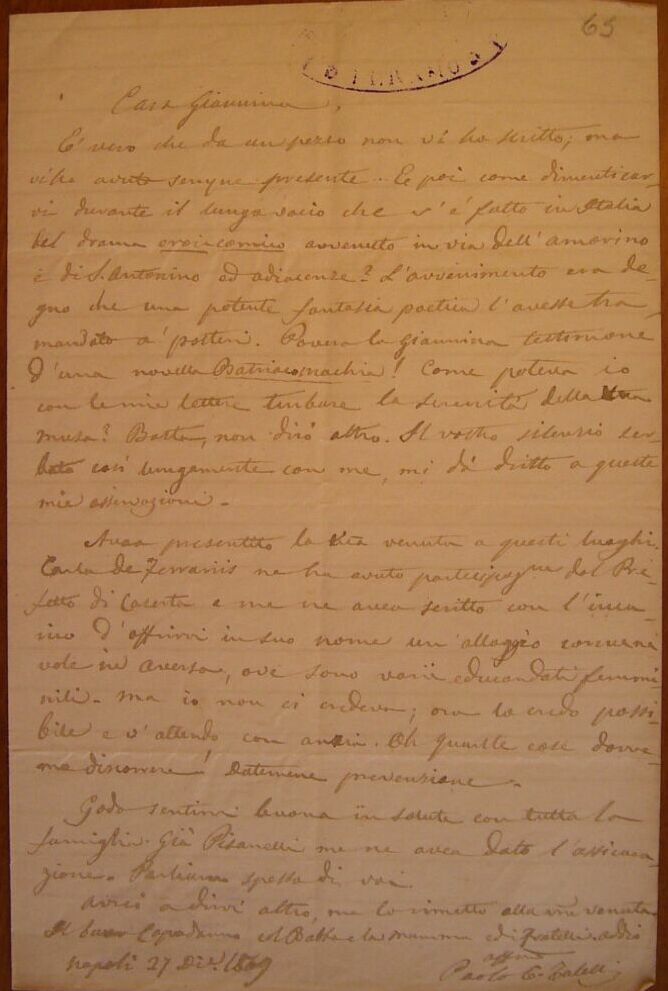 65
TERAMO
Cara Giannina,
E' vero che da un pezzo non vi ho scritto; ma
vi ho avuto sempre presente. E poi come dimenticar-
vi durante il lungo vocio che s'è fatto in Italia
del drama eroicomico avvenuto in via dell'amorino
e di S. Antonino ad adiacenze? L'avvenimento era de-
gno che una potente fantasia poetica l'avesse tra-
mandato a' posteri. Povera la Giannina testimone
d'una novella Batriacomachia! Come poteva io
con le mie lettere turbare la serenità della
musa? Basta, non dirò altro. Il vostro silenzio ser-
bato così lungamente con me, mi dà dritto a queste
mie
Avea presentito la venuta a questi luoghi.
Carlo de Ferrariis ne ha avuto dal Pre-
fetto di Caserta e me ne avea scritto con l'inca-
rico d'offrirvi in suo nome un alloggio conveni
vole in Aversa, ove sono varii educandati femmi-
nili. Ma io non ci credeva; ora lo credo possi-
bile e v'attendo con ansia. Oh quante cose dovre-
mo discorrere! Datemene prevenzione.
Godo sentirvi buona in salute con tutta la
famiglia. Già Pisanelli me ne avea dato l'assicura-
zione. Parliamo spesso di voi.
Avrei a dirvi altro, ma lo rimetto alla venuta
Il buon Capodanno il Babbo e la mamma ed i Fratelli. addio
Napoli 27 Dic. 1869
affmo
Paolo E.